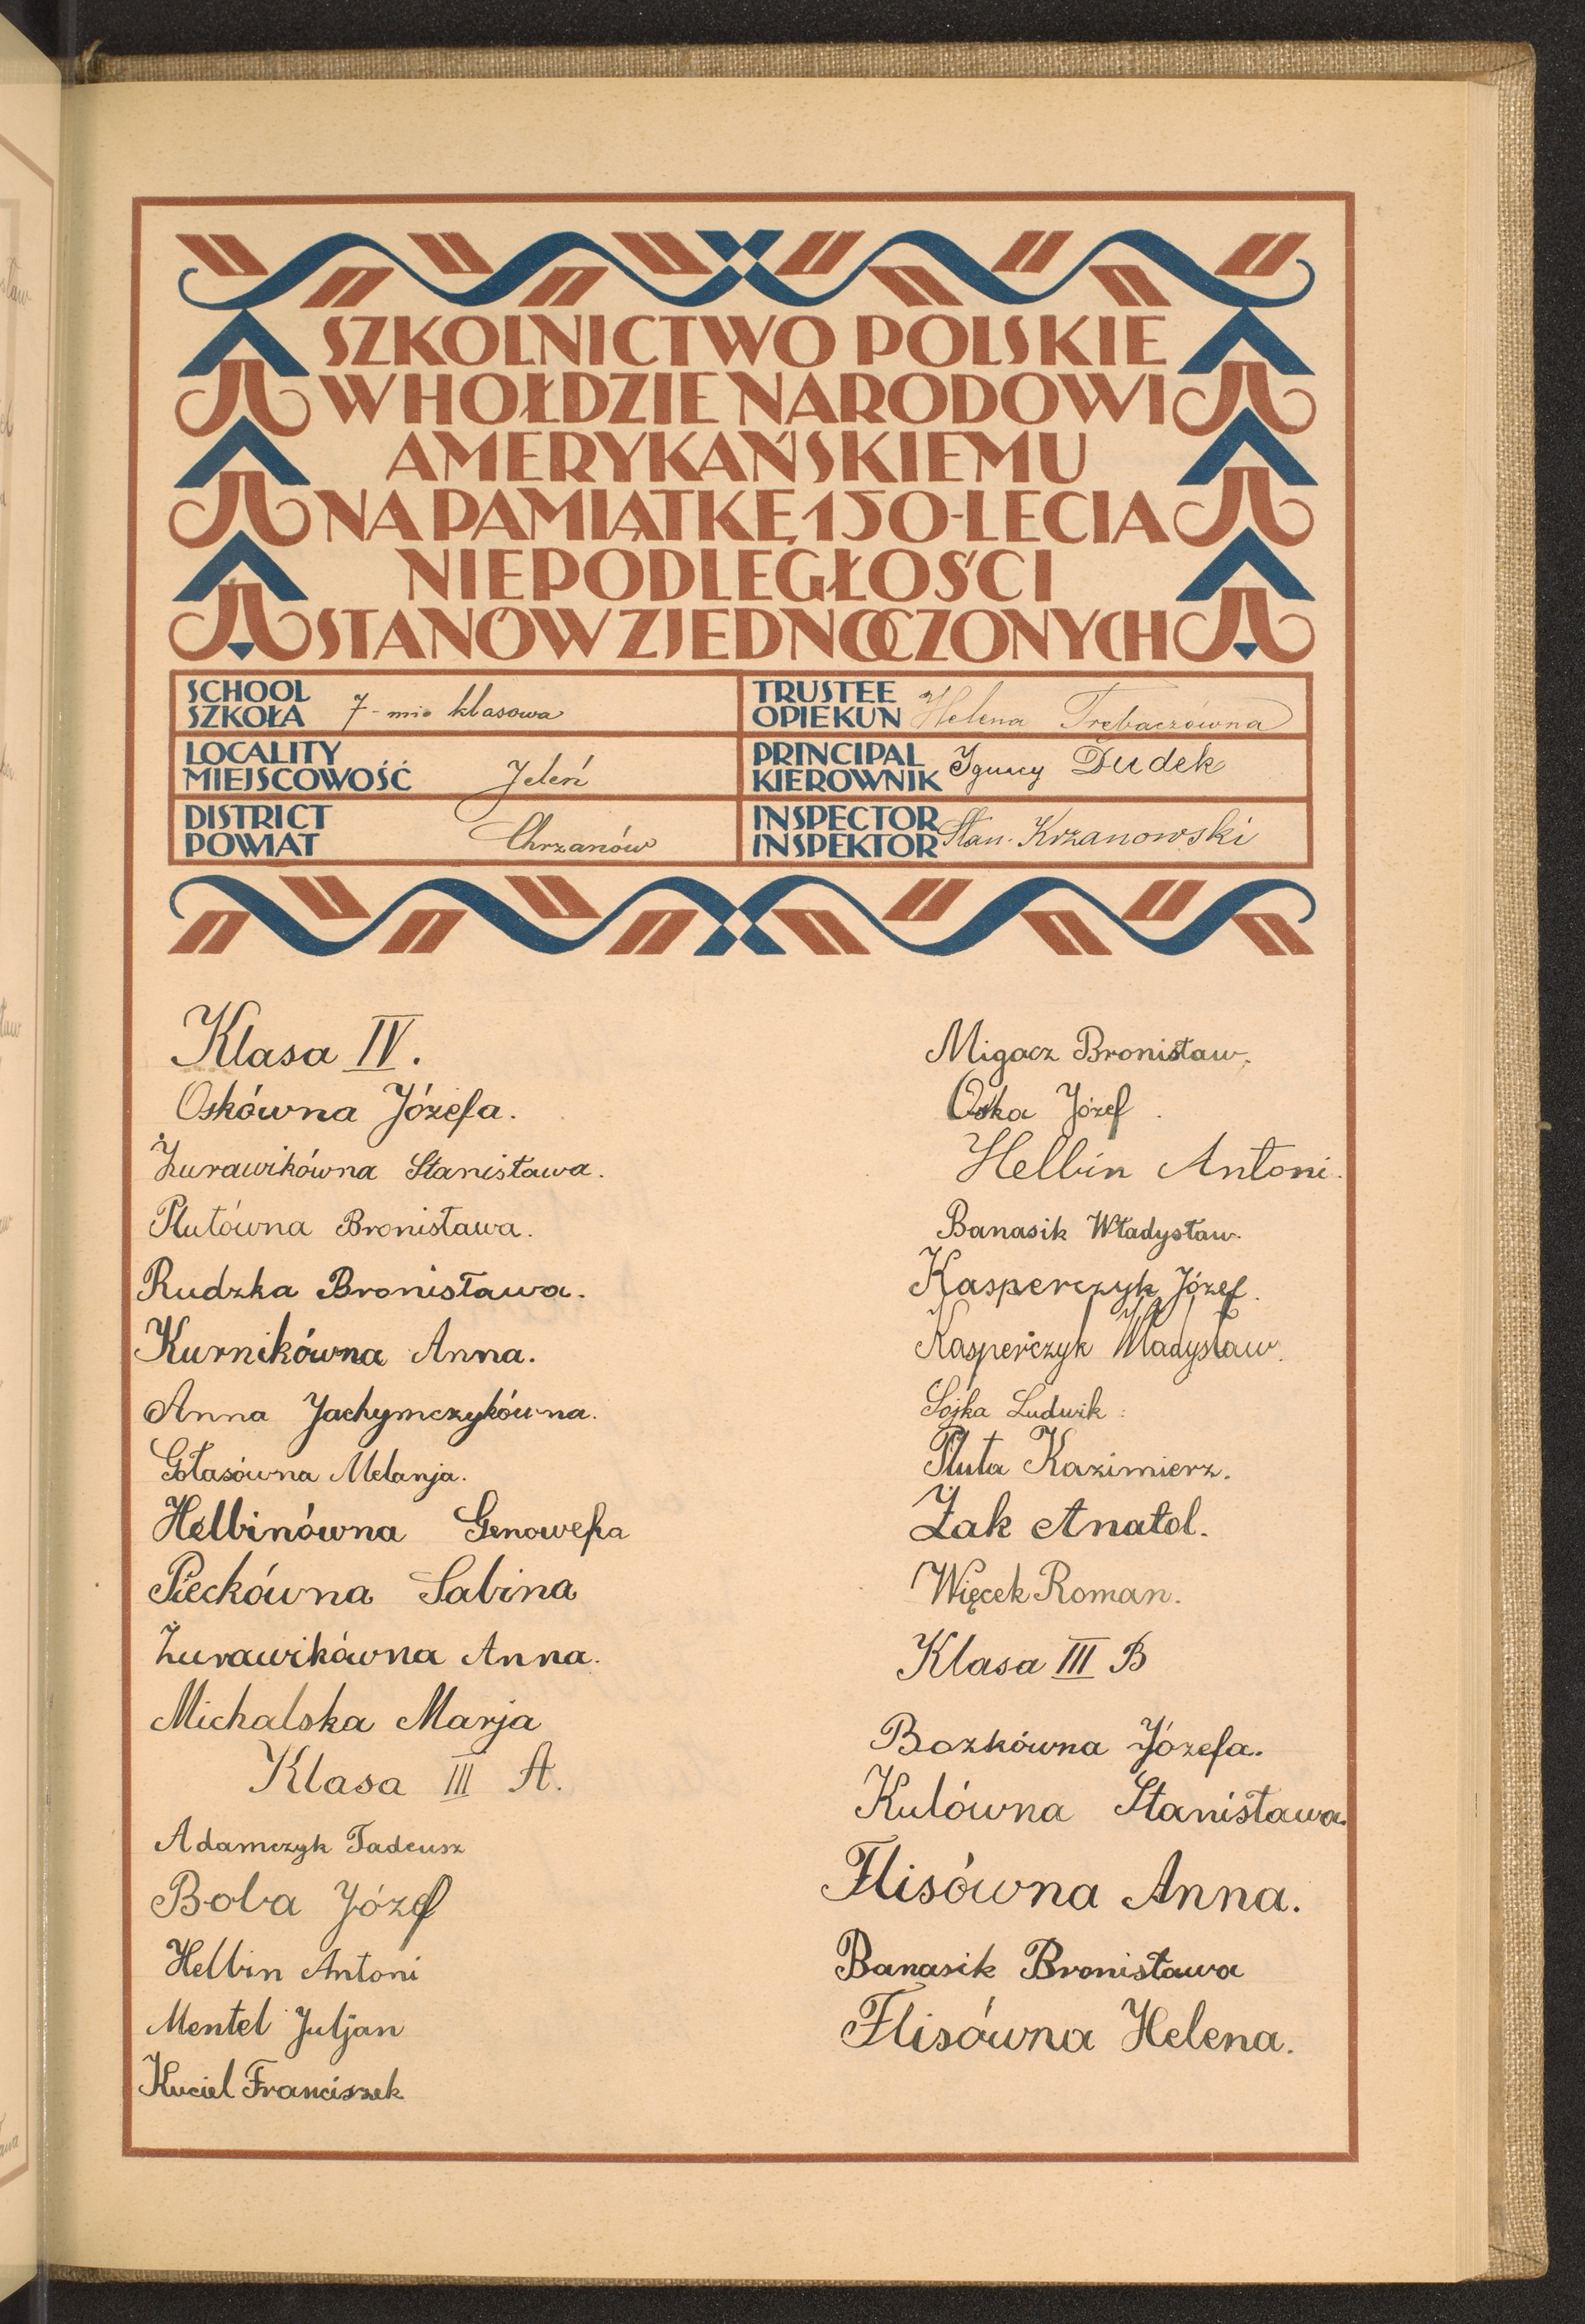 SZKOLNICTWO POLSKIE
W HOŁDZIE NARODOWI
AMERYKAŃSKIEMU
NA PAMIĄTKĘ 150-LECIA
NIEPODLEGŁOŚCI
STANÓW ZJEDNOCZONYCH
SCHOOL
SZKOŁA 7-mio klasowa
TRUSTEE
OPIEKUN Helena Trębaczówna
LOCALITY
MIEJSCOWOŚĆ Jeleń
PRINCIPAL
KIEROWNIK Ignacy Dudek
DISTRICT
POWIAT Chrzanów
INSPECTOR
INSPEKTOR Stan. Krzanowski
Klasa IV.
Oskówna Józefa.
Żurawikówna Stanisława.
Plutówna Bronisława.
Rudzka Bronisława.
Kurnikówna Anna.
Anna Jachymczykówna.
Gołasówna Melanja.
Helbinówna Genowefa
Pieckówna Sabina
Żurawikówna Anna.
Michalska Marja
Klasa III A.
Adamczyk Tadeusz
Boba Józef
Helbin Antoni
Mentel Juljan
Kuciel Franciszek
Migacz Bronisław.
Oska Józef.
Helbin Antoni.
Banasik Władysław.
Kasperczyk Józef.
Kasperczyk Władysław.
Sojka Ludwik
Pluta Kazimierz.
Żak Anatol.
Więcek Roman.
Klasa III B
Bozkówna Józefa.
Kulówna Stanisława.
Flisówna Anna.
Banasik Bronisława
Flisówna Helena.